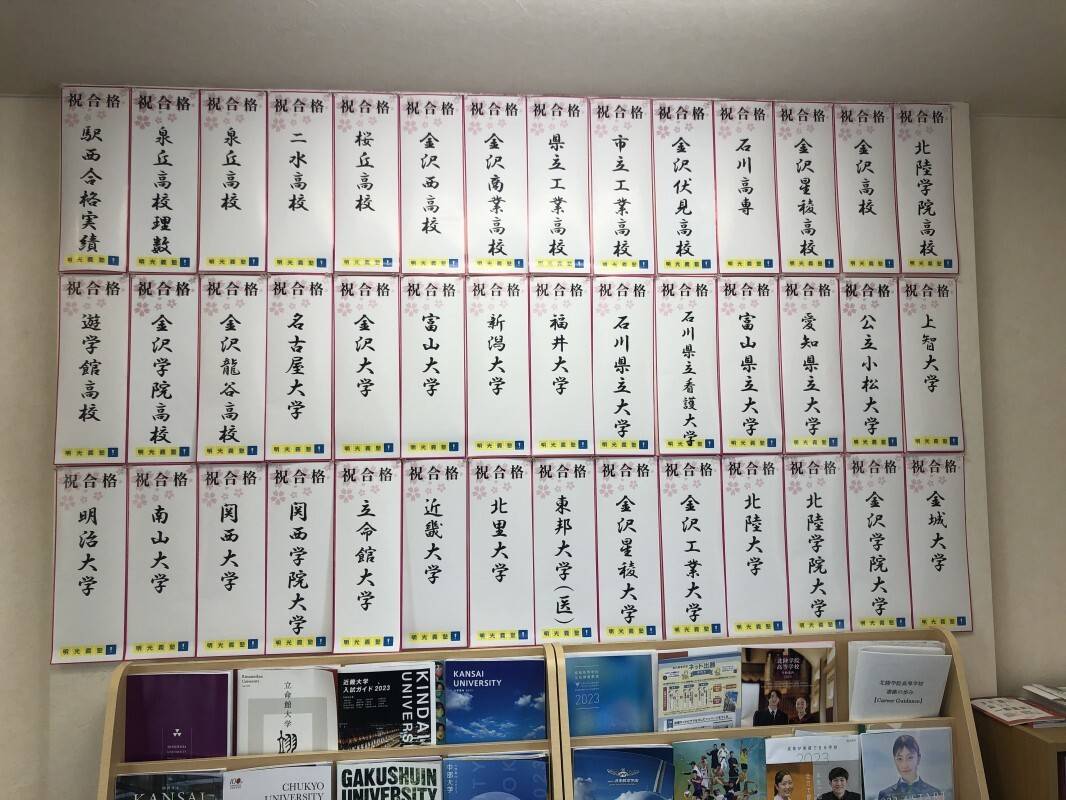 祝合格
駅西合格実績
明光義塾
祝合格
泉丘高校理数
明光義塾
祝合格
泉丘高校
明光義塾
祝合格
二水高校
明光義塾
祝合格
桜丘高校
明光義塾
祝合格
金沢西高校
明光義塾
祝合格
金沢商業高校
明光義塾
祝合格
県立工業高校
明光義塾
祝合格
市立工業高校
明光義塾
祝合格
金沢伏見高校
明光義塾
祝合格
石川高専
明光義塾
祝合格
金沢星稜高校
明光義塾
祝合格
金沢高校
明光義塾
祝合格
北陸学院高校
明光義塾
祝合格
遊学館高校
明光義塾
祝合格
金沢学院高校
明光義塾
祝合格
金沢龍谷高校
明光義塾
祝合格
名古屋大学
明光義塾
祝合格
金沢大学
明光義塾
祝合格
富山大学
明光義塾
祝合格
新潟大学
明光義塾
祝合格
福井大学
明光義塾
祝合格
石川県立大学
明光義塾
祝合格
石川県立看護大学
明光義塾
祝合格
富山県立大学
明光義塾
祝合格
愛知県立大学
明光義塾
祝合格
公立小松大学
明光義塾
祝合格
上智大学
明光義塾
祝合格
明治大学
明光義塾
祝合格
南山大学
明光義塾
祝合格
関西大学
明光義塾
祝合格
関西学院大学
明光義塾
祝合格
立命館大学
明光義塾
祝合格
近畿大学
明光義塾
祝合格
北里大学
明光義塾
祝合格
東邦大学(医)
明光義塾
祝合格
金沢星稜大学
明光義塾
祝合格
金沢工業大学
明光義塾
祝合格
北陸大学
明光義塾
祝合格
北陸学院大学
明光義塾
祝合格
金沢学院大学
明光義塾
祝合格
金城大学
明光義塾
Ritsumeikan
University
立命館大学
近畿大学
入試ガイド2023
KINDAI
UNIVERSITY
KANSAI
UNIVERSITY
2023
ネット出願
北陸学院
高等学校
北陸学院高等学校
進路の歩み
【Career Guidance】
KANSAI
CHUKYO
UNIVERSITY
GAKUSHUIN
UNIVERSITY
中部大学
2023
START